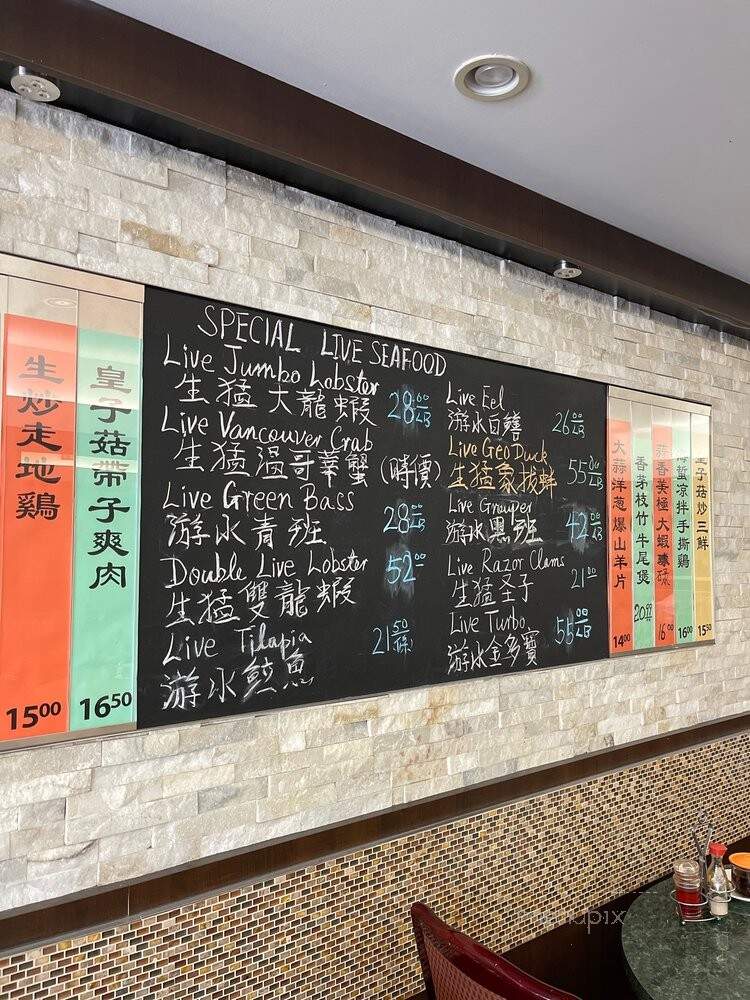 生炒走地鷄
15⁰⁰
皇子菇帶子爽肉
16⁵⁰
SPECIAL LIVE SEAFOOD
Live Jumbo Lobster
生猛大龍蝦 28⁰⁰/LB
Live Vancouver Crab
生猛溫哥華蟹 (時價)
Live Green Bass
游水青班 28⁰⁰/LB
Double Live Lobster
生猛雙龍蝦 52⁰⁰
Live Tilapia
游水鯪魚 21⁵⁰/條
Live Eel
游水白鱔 26⁰⁰/LB
Live GeoDuck
生猛象拔蚌 55⁰⁰/LB
Live Grouper
游水黑班 42⁰⁰/LB
Live Razor Clams
生猛圣子 21⁰⁰
Live Turbo
游水金多寶 55⁰⁰/LB
大蒜洋葱爆山羊片
14⁰⁰
香茅枝竹牛尾煲
20⁹⁹
蒜香美極大蝦
16⁰⁰
海蜇凉拌手撕鷄
16⁰⁰
皇子菇炒三鮮
15⁵⁰